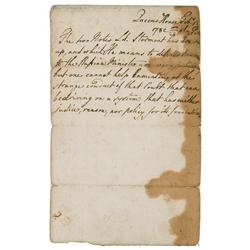 Queens House Feb.
1782
The two Notes Ld. Stormont has drawn
up, and which He means to deliver
to the Russian Minister are very
but one cannot help lamenting at the
strange conduct of that Court that can
be driving on a system that has neither
justice, reason, nor policy for its foundation